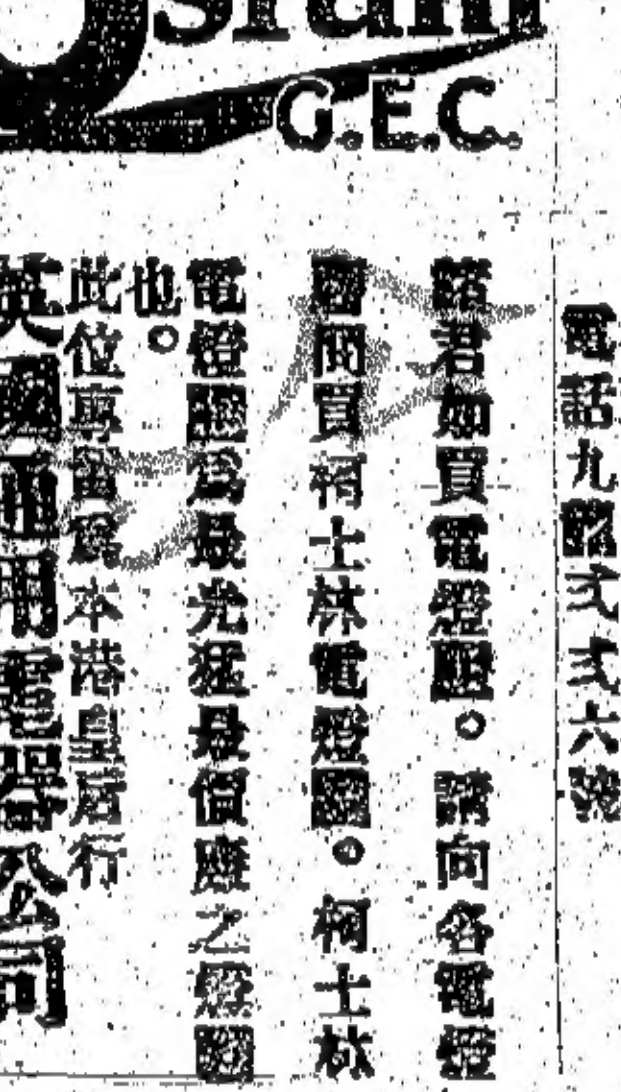 Osram
G.E.C.
電話九弍弍六號
諸君如買電燈膽。請向各電燈
問買柯士林電燈膽。柯士林
電燈膽為最光猛最價廉之燈膽
也。
此位專留為本港皇后行
英國通用電器公司